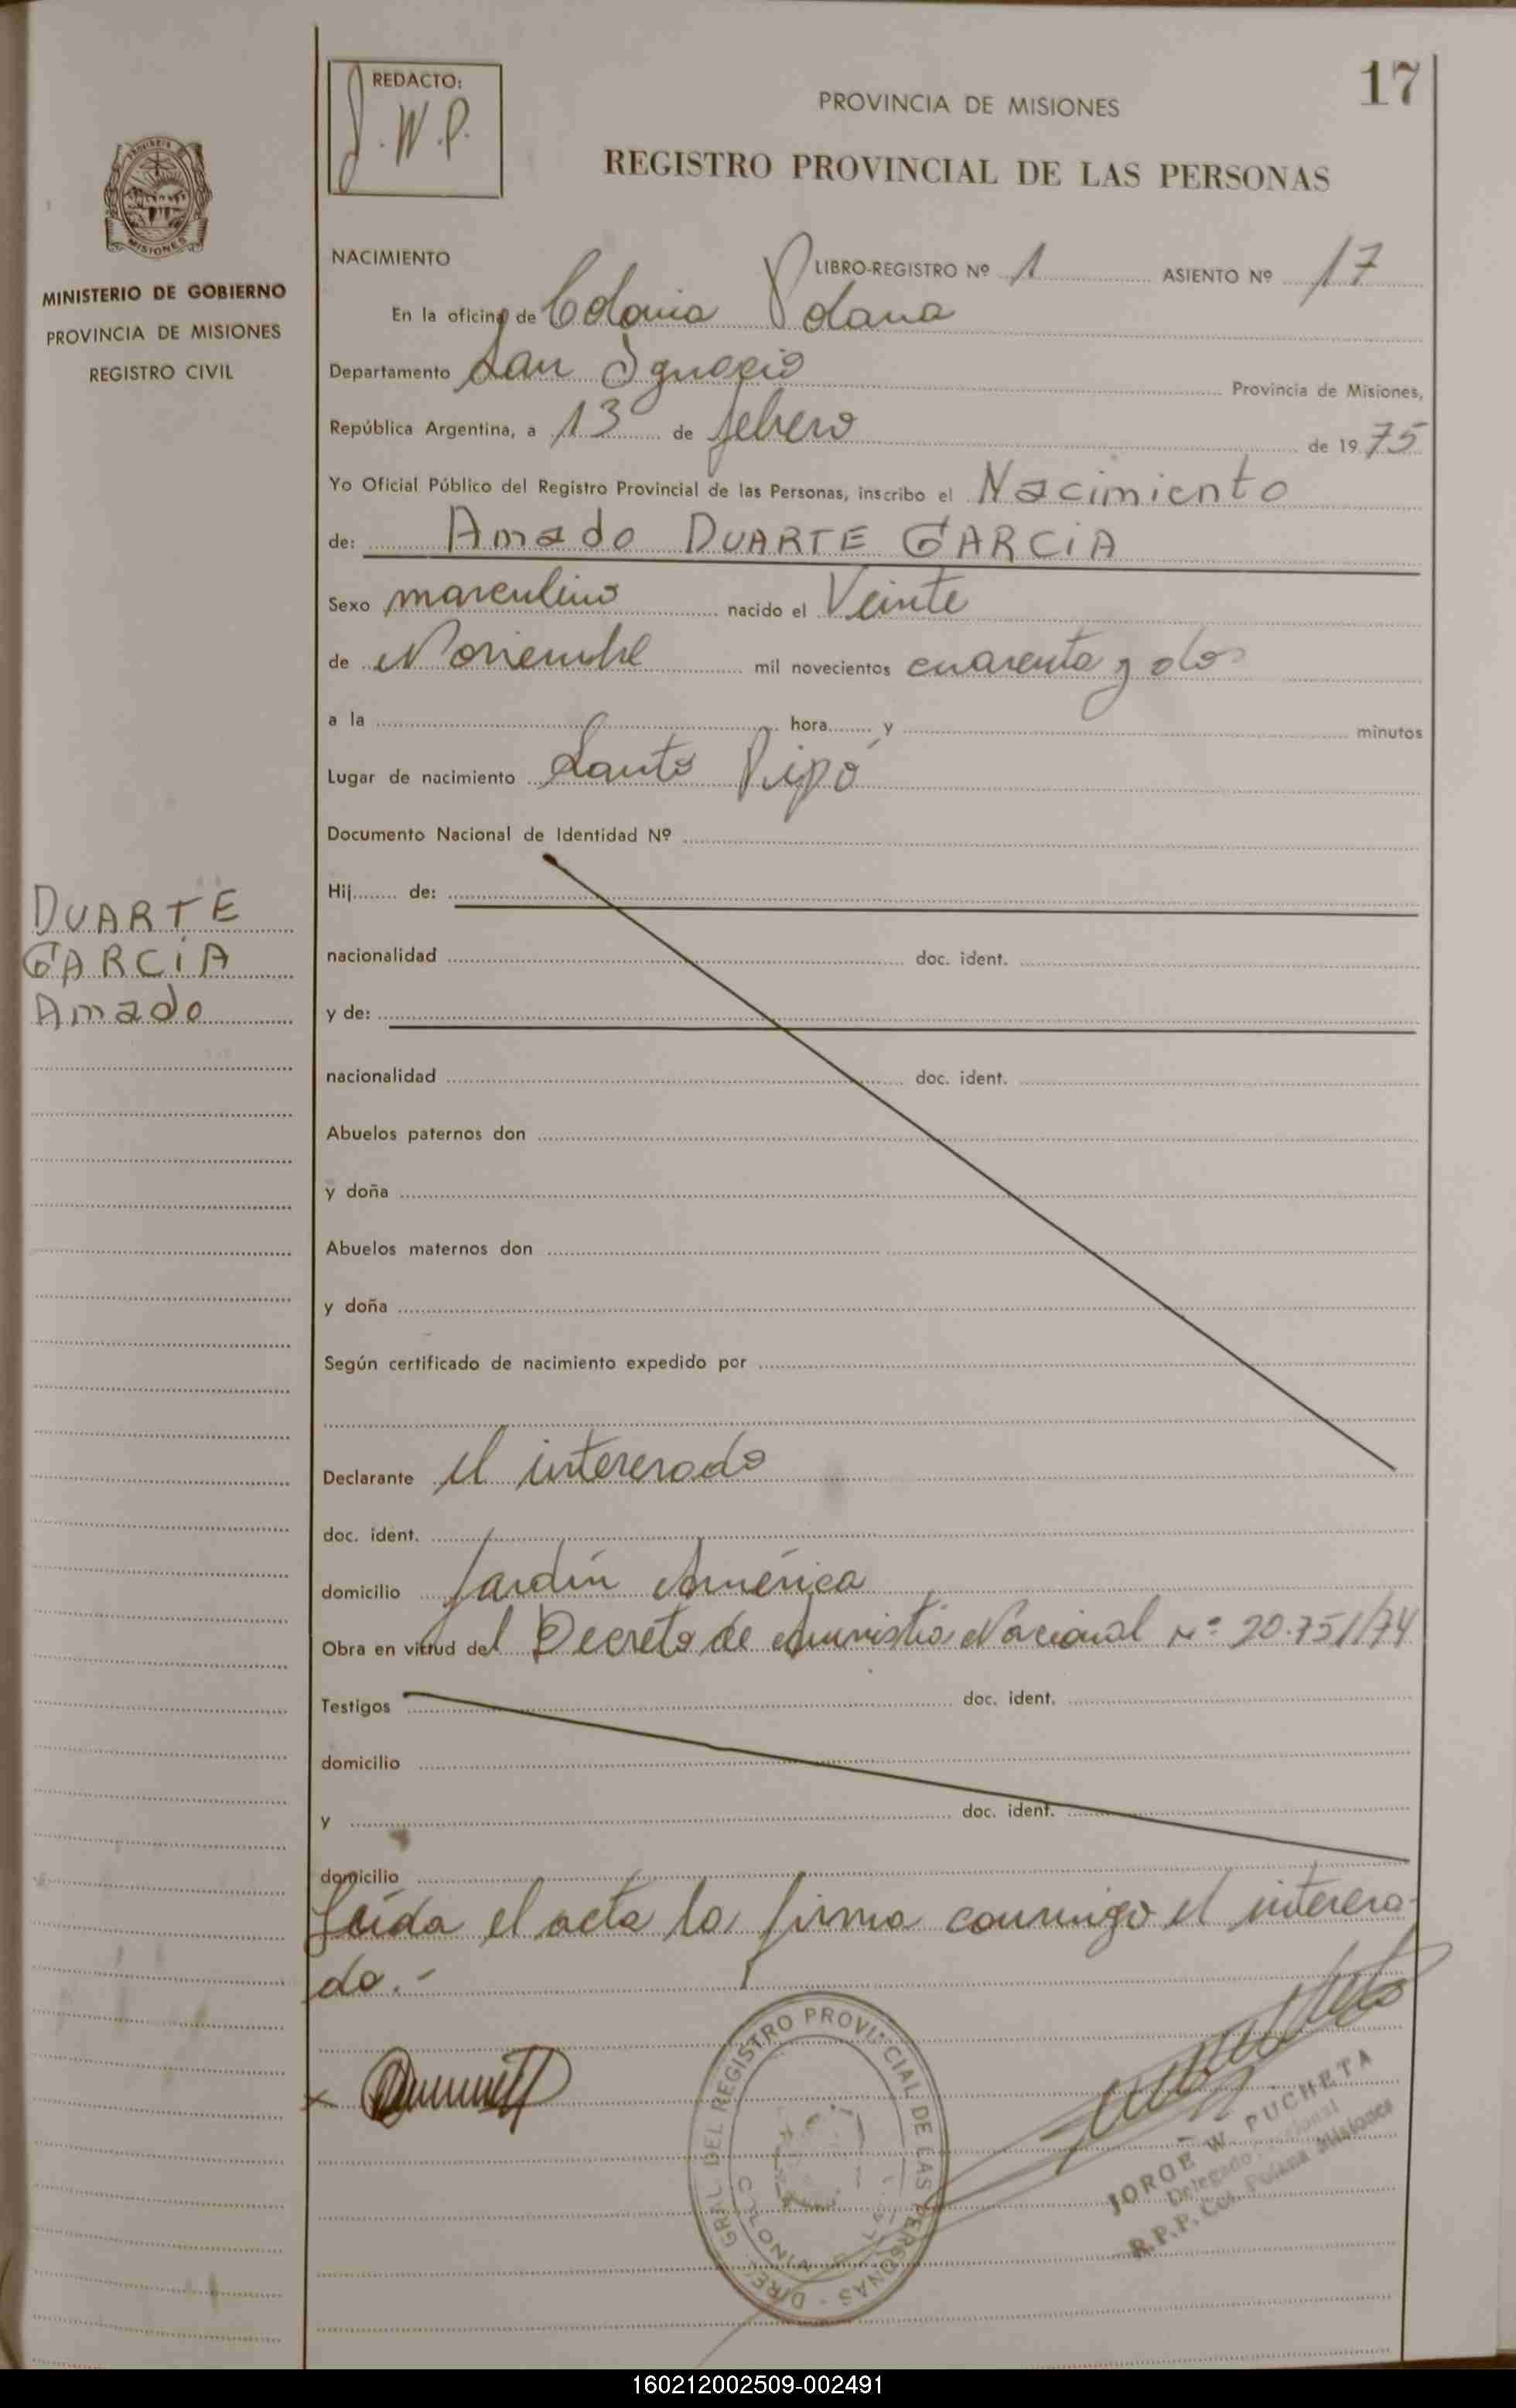 17
REDACTO:
J.W.P.
PROVINCIA DE MISIONES
REGISTRO PROVINCIAL DE LAS PERSONAS
MISIONES
MINISTERIO DE GOBIERNO
PROVINCIA DE MISIONES
REGISTRO CIVIL
NACIMIENTO LIBRO-REGISTRO Nº 1 ASIENTO Nº 17
En la oficina de Colonia Polana
Departamento San Ignacio Provincia de Misiones,
República Argentina, a 13 de febrero de 1975
Yo Oficial Público del Registro Provincial de las Personas, inscribo el Nacimiento
de: Amado DUARTE GARCIA
Sexo masculino nacido el Veinte
de Noviembre mil novecientos cuarenta y dos
a la hora y minutos
Lugar de nacimiento Santo Pipó
Documento Nacional de Identidad Nº
DUARTE
GARCIA
Amado
Hij de:
nacionalidad doc. ident.
y de:
nacionalidad doc. ident.
Abuelos paternos don
y doña
Abuelos maternos don
y doña
Según certificado de nacimiento expedido por
Declarante el interesado
doc. ident.
domicilio Jardín América
Obra en virtud del Decreto de Amnistia Nacional Nº 20.751/74
Testigos doc. ident.
domicilio
y doc. ident.
domicilio
Leída el acta la firma conmigo el interesa-
do.-
x
DIREC. GRAL. DEL REGISTRO PROVINCIAL DE LAS PERSONAS
JORGE W. PUCHETA
Delegado
R.P.P. Col. Polana Misiones
160212002509-002491